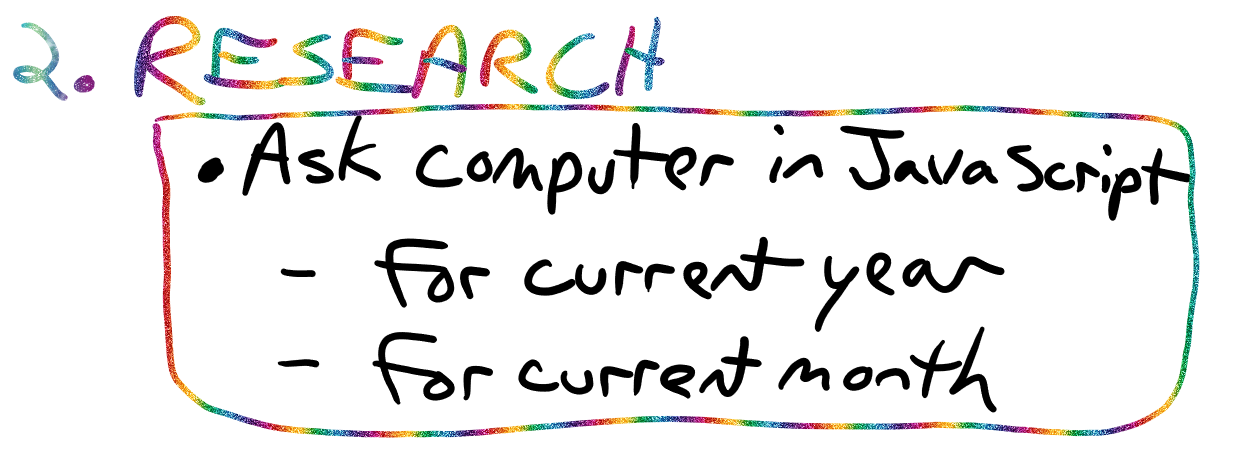 2. RESEARCH
• Ask computer in JavaScript
- for current year
- for current month